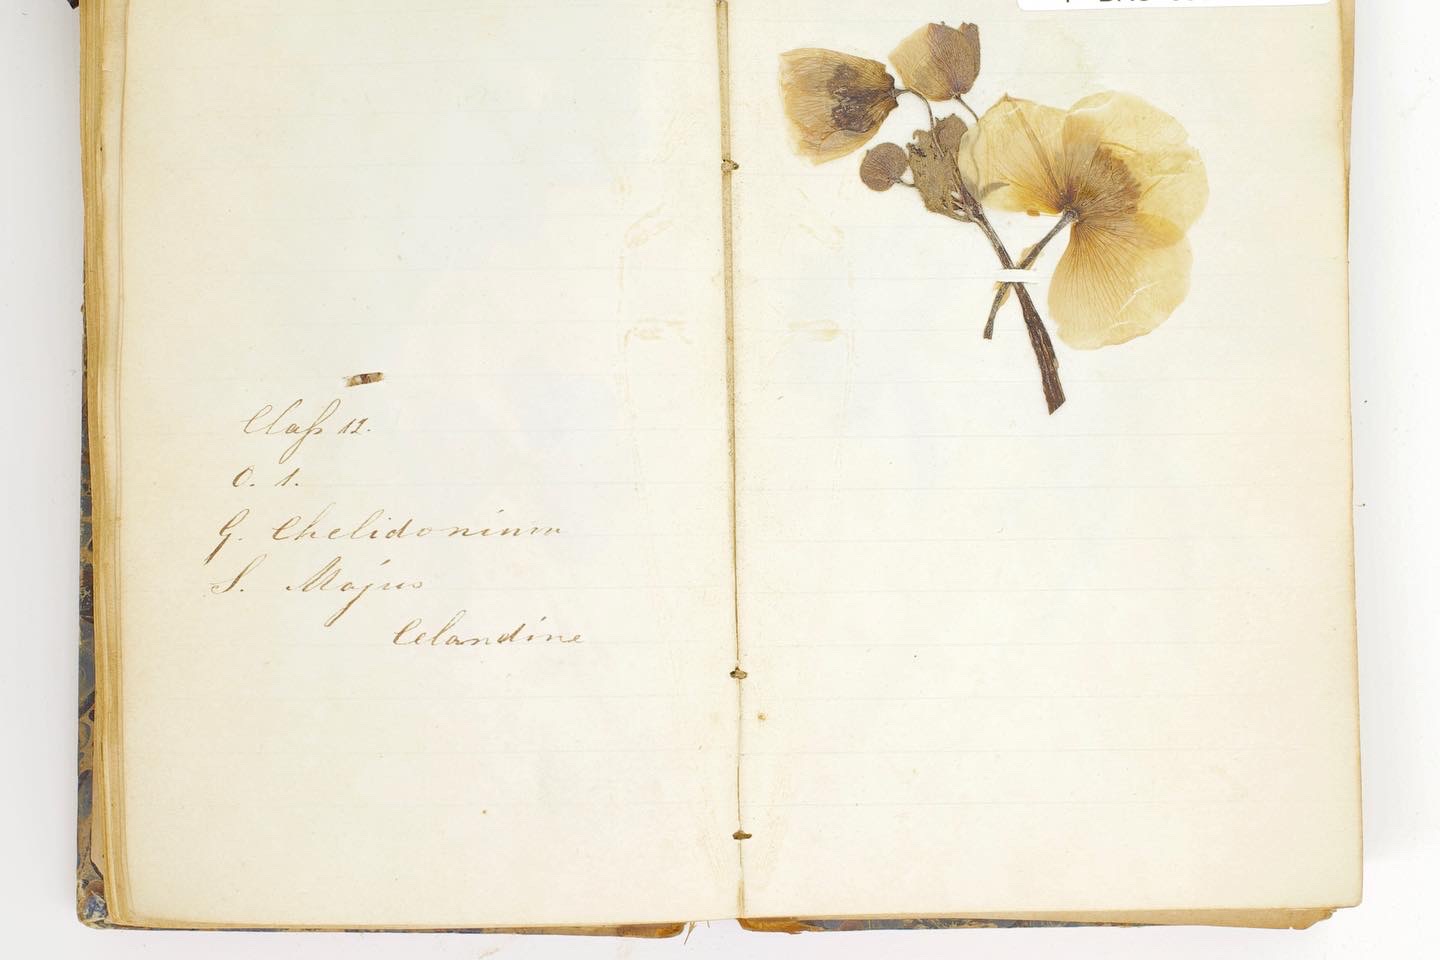 Class 12.
O. 1.
G. Chelidonium
S. Majus
Celandine